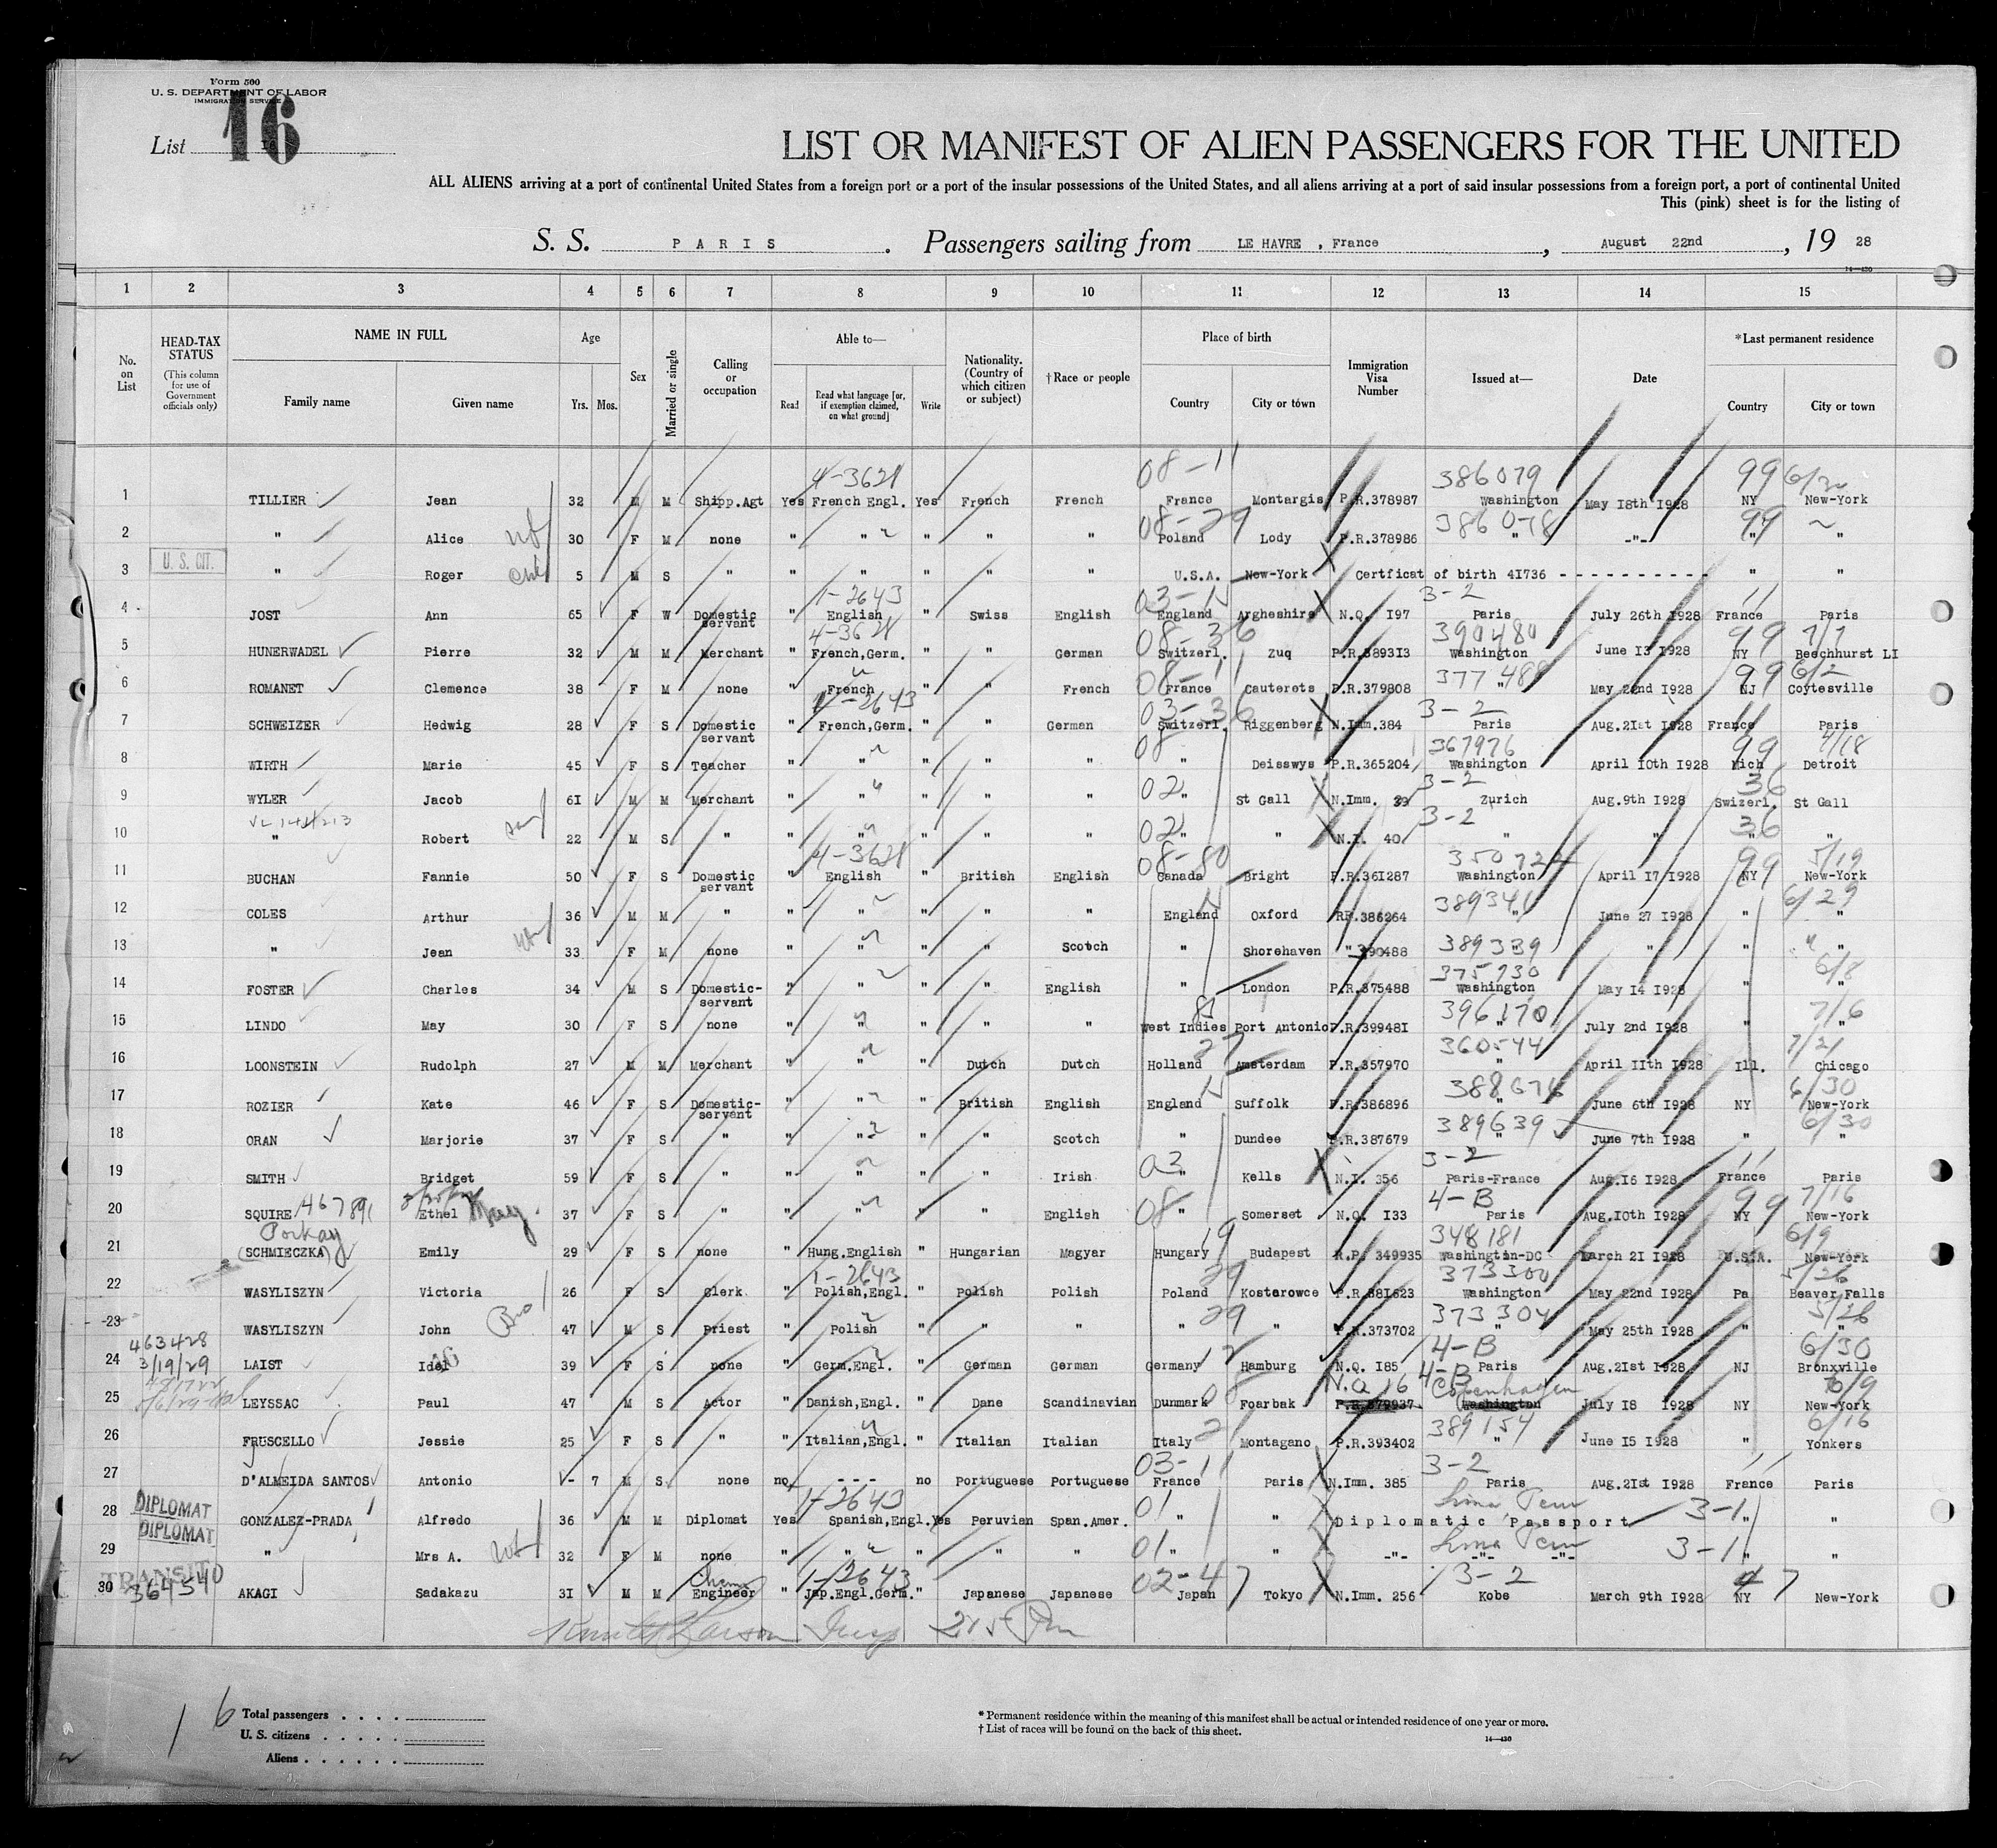 Form 500
U. S. DEPARTMENT OF LABOR
IMMIGRATION SERVICE
List 16
LIST OR MANIFEST OF ALIEN PASSENGERS FOR THE UNITED
ALL ALIENS arriving at a port of continental United States from a foreign port or a port of the insular possessions of the United States, and all aliens arriving at a port of said insular possessions from a foreign port, a port of continental United
This (pink) sheet is for the listing of
S. S. PARIS. Passengers sailing from LE HAVRE , France, August 22nd, 19 28
14—430
1 2 3 4 5 6 7 8 9 10 11 12 13 14 15
No. on List
HEAD-TAX STATUS (This column for use of Government officials only)
NAME IN FULL Family name Given name
Age Yrs. Mos.
Sex
Married or single
Calling or occupation
Able to— Read Read what language [or, if exemption claimed, on what ground] Write
Nationality. (Country of which citizen or subject)
†Race or people
Place of birth Country City or town
Immigration Visa Number
Issued at—
Date
*Last permanent residence Country City or town
4-3621 08-11 386079 99 6/30
1 TILLIER Jean 32 M M Shipp.Agt Yes French Engl. Yes French French France Montargis P.R.378987 Washington May 18th 1928 NY New-York
08-29 386078 99
2 " Alice 30 F M none " " " " " Poland Lody P.R.378986 " -"- " "
3 U. S. CIT. " Roger 5 M S " " " " " " U.S.A. New-York Certficat of birth 41736 - - - - - - - - - - - " "
1-2643 3-2 11
4 JOST Ann 65 F W Domestic servant " English " Swiss English England Argheshire N.Q. 197 Paris July 26th 1928 France Paris
4-3621 08-36 390480 99 7/7
5 HUNERWADEL Pierre 32 M M Merchant " French,Germ. " " German Switzerl. Zuq P.R.389313 Washington June 13 1928 NY Beechhurst LI
08-11 377488 99 6/2
6 ROMANET Clemence 38 F M none " French " " French France Cauterets P.R.379808 " May 22nd 1928 NJ Coytesville
4-2643 03-36 3-2 11
7 SCHWEIZER Hedwig 28 F S Domestic servant " French,Germ. " " German Switzerl. Riggenberg N.Imm.384 Paris Aug.21st 1928 France Paris
08 367976 99 4/18
8 WIRTH Marie 45 F S Teacher " " " " " " Deisswys P.R.365204 Washington April 10th 1928 Mich Detroit
02 3-2 36
9 WYLER Jacob 61 M M Merchant " " " " " " St Gall N.Imm. 39 Zurich Aug.9th 1928 Swizerl. St Gall
02 3-2 36
10 " Robert 22 M S " " " " " " " " N.I. 40 " " " "
4-3621 08-80 350722 99 5/19
11 BUCHAN Fannie 50 F S Domestic servant " English " British English Canada Bright P.R.361287 Washington April 17 1928 NY New-York
389341 6/29
12 COLES Arthur 36 M M " " " " " " England Oxford RP.386264 " June 27 1928 " "
389339
13 " Jean 33 F M none " " " " Scotch " Shorehaven " 390488 " " "
375730 6/8
14 FOSTER Charles 34 M S Domestic-servant " " " " English " London P.R.375488 Washington May 14 1928 " "
396170 7/6
15 LINDO May 30 F S none " " " " " West Indies Port Antonio P.R.399481 " July 2nd 1928 " "
27 360544 7/21
16 LOONSTEIN Rudolph 27 M M Merchant " " " Dutch Dutch Holland Amsterdam P.R.357970 " April 11th 1928 Ill. Chicago
388676 6/30
17 ROZIER Kate 46 F S Domestic-servant " " " British English England Suffolk P.R.386896 " June 6th 1928 NY New-York
389639 6/30
18 ORAN Marjorie 37 F S " " " " " Scotch " Dundee P.R.387679 " June 7th 1928 " "
03 3-2 11
19 SMITH Bridget 59 F S " " " " " Irish " Kells N.I. 356 Paris-France Aug.16 1928 France Paris
08 4-B 99 7/16
20 SQUIRE 467891 Ethel Mary. 37 F S " " " " " English " Somerset N.Q. 133 Paris Aug.10th 1928 NY New-York
Porkay 19 348181 6/9
21 (SCHMIECZKA) Emily 29 F S none " Hung.English " Hungarian Magyar Hungary Budapest R.P. 349935 Washington-DC March 21 1928 U.S.A. New-York
1-2643 29 373300 5/26
22 WASYLISZYN Victoria 26 F S Clerk " Polish,Engl. " Polish Polish Poland Kosterowce P.R 381623 Washington May 22nd 1928 Pa Beaver Falls
29 373304 5/26
23 WASYLISZYN John 47 M S Priest " Polish " " " " " P.R.373702 " May 25th 1928 " "
463428 3/19/29 12 4-B 6/30
24 LAIST Idel 39 F S none " Germ.Engl. " German German Germany Hamburg N.Q. 185 Paris Aug.21st 1928 NJ Bronxville
08 N.Q 16 4-B Copenhagen 6/9
25 LEYSSAC Paul 47 M S Actor " Danish,Engl. " Dane Scandinavian Dunmark Foarbak P.R.379937 Washington July 18 1928 NY New-York
389154 6/16
26 FRUSCELLO Jessie 25 F S " " Italian,Engl. " Italian Italian Italy Montagano P.R.393402 " June 15 1928 " Yonkers
03-11 3-2 11
27 D'ALMEIDA SANTOS Antonio - 7 M S none no - - - no Portuguese Portuguese France Paris N.Imm. 385 Paris Aug.21st 1928 France Paris
DIPLOMAT 1-2643 01 Lima Peru 3-1
28 GONZALEZ-PRADA Alfredo 36 M M Diplomat Yes Spanish,Engl. Yes Peruvian Span.Amer. " " Diplomatic Passport " "
DIPLOMAT 01 Lima Peru 3-1
29 " Mrs A. 32 F M none " " " " " " " -"- -"- -"- " "
TRANSIT 364540 Chem 1-2643 02-47 3-2 47
30 AKAGI Sadakazu 31 M M Engineer " Jap.Engl.Germ. " Japanese Japanese Japan Tokyo N.Imm. 256 Kobe March 9th 1928 NY New-York
16 Total passengers . . . .
U. S. citizens . . . . .
Aliens . . . . . .
* Permanent residence within the meaning of this manifest shall be actual or intended residence of one year or more.
† List of races will be found on the back of this sheet.
14—430